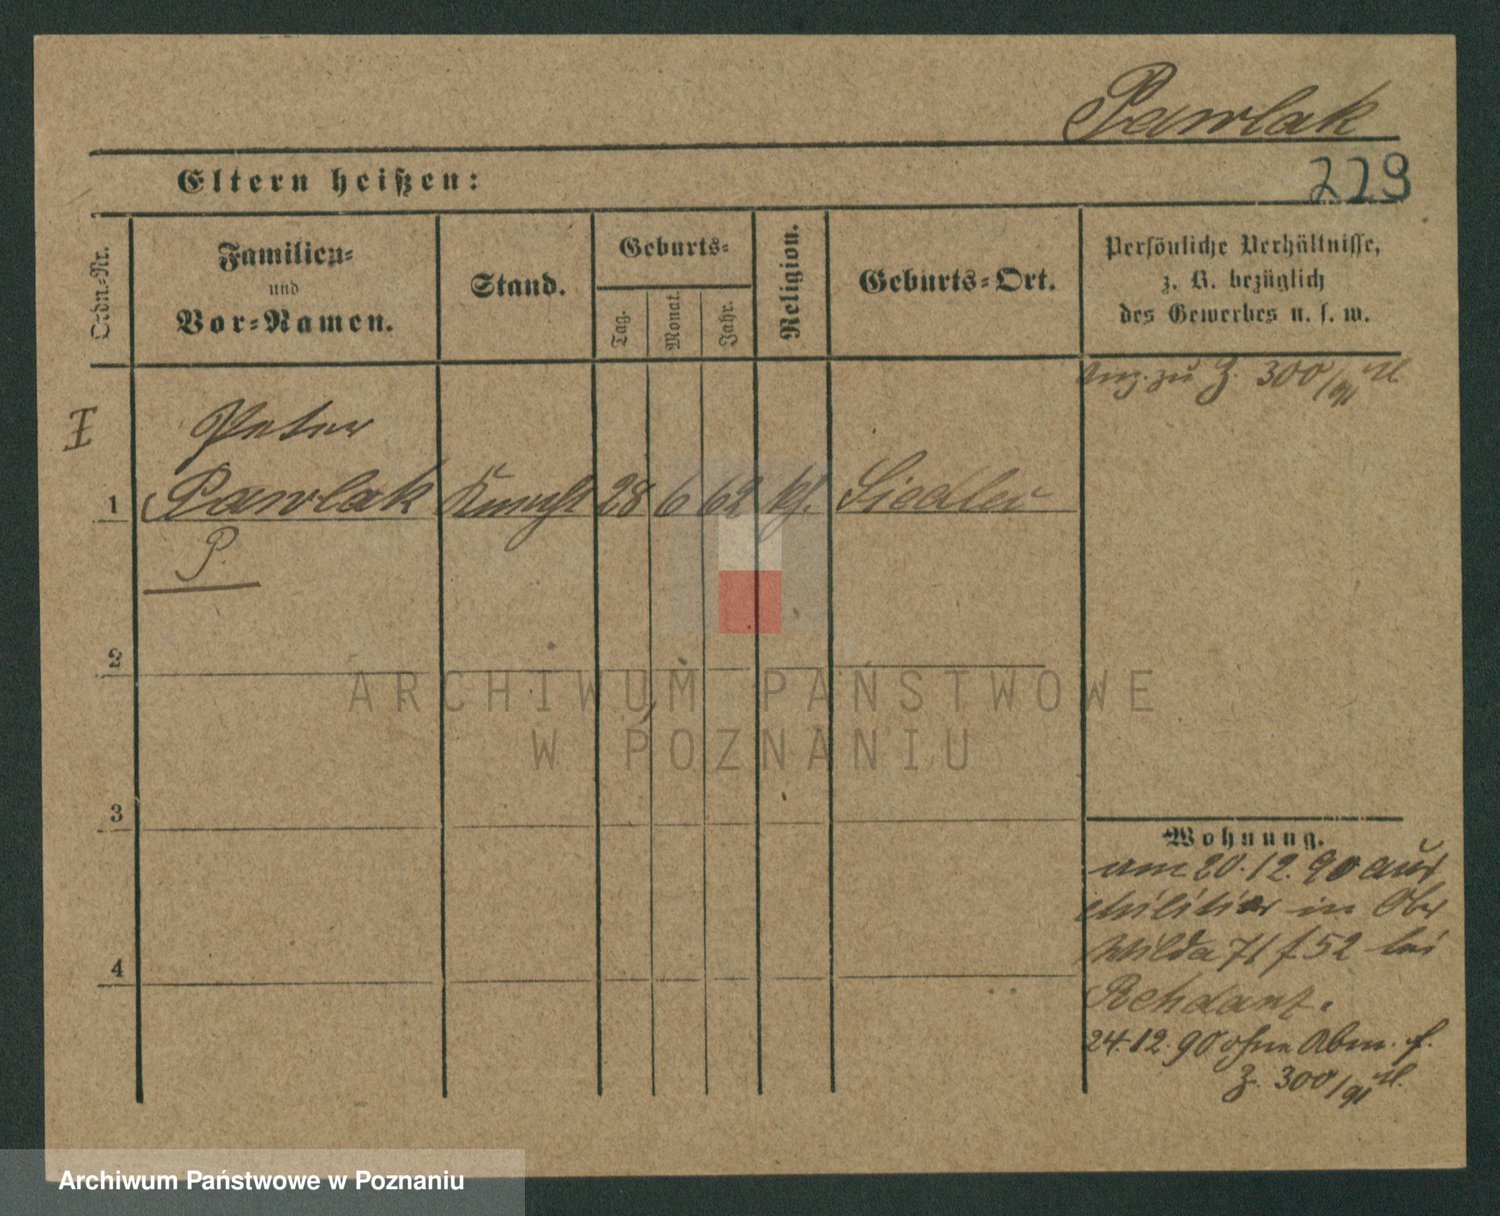 Pawlak
229
Eltern heißen:
Ordn.-Nr.
Familien-
und
Vor-Namen.
Stand.
Geburts-
Tag.
Monat.
Jahr.
Religion.
Geburts-Ort.
Persönliche Verhältnisse,
z. B. bezüglich
des Gewerbes u. s. w.
zu Z. 300/91
I
Peter
1 Pawlak Knecht 28 6 62 kt.
P.
2
3
4
Wohnung.
am 20.12.90 aus
in Ober
Wilda 71 f. 52 bei
Rehdanz.
24.12.90 ohne Abm. f.
Z. 300/91
ARCHIWUM PAŃSTWOWE
W POZNANIU
Archiwum Państwowe w Poznaniu